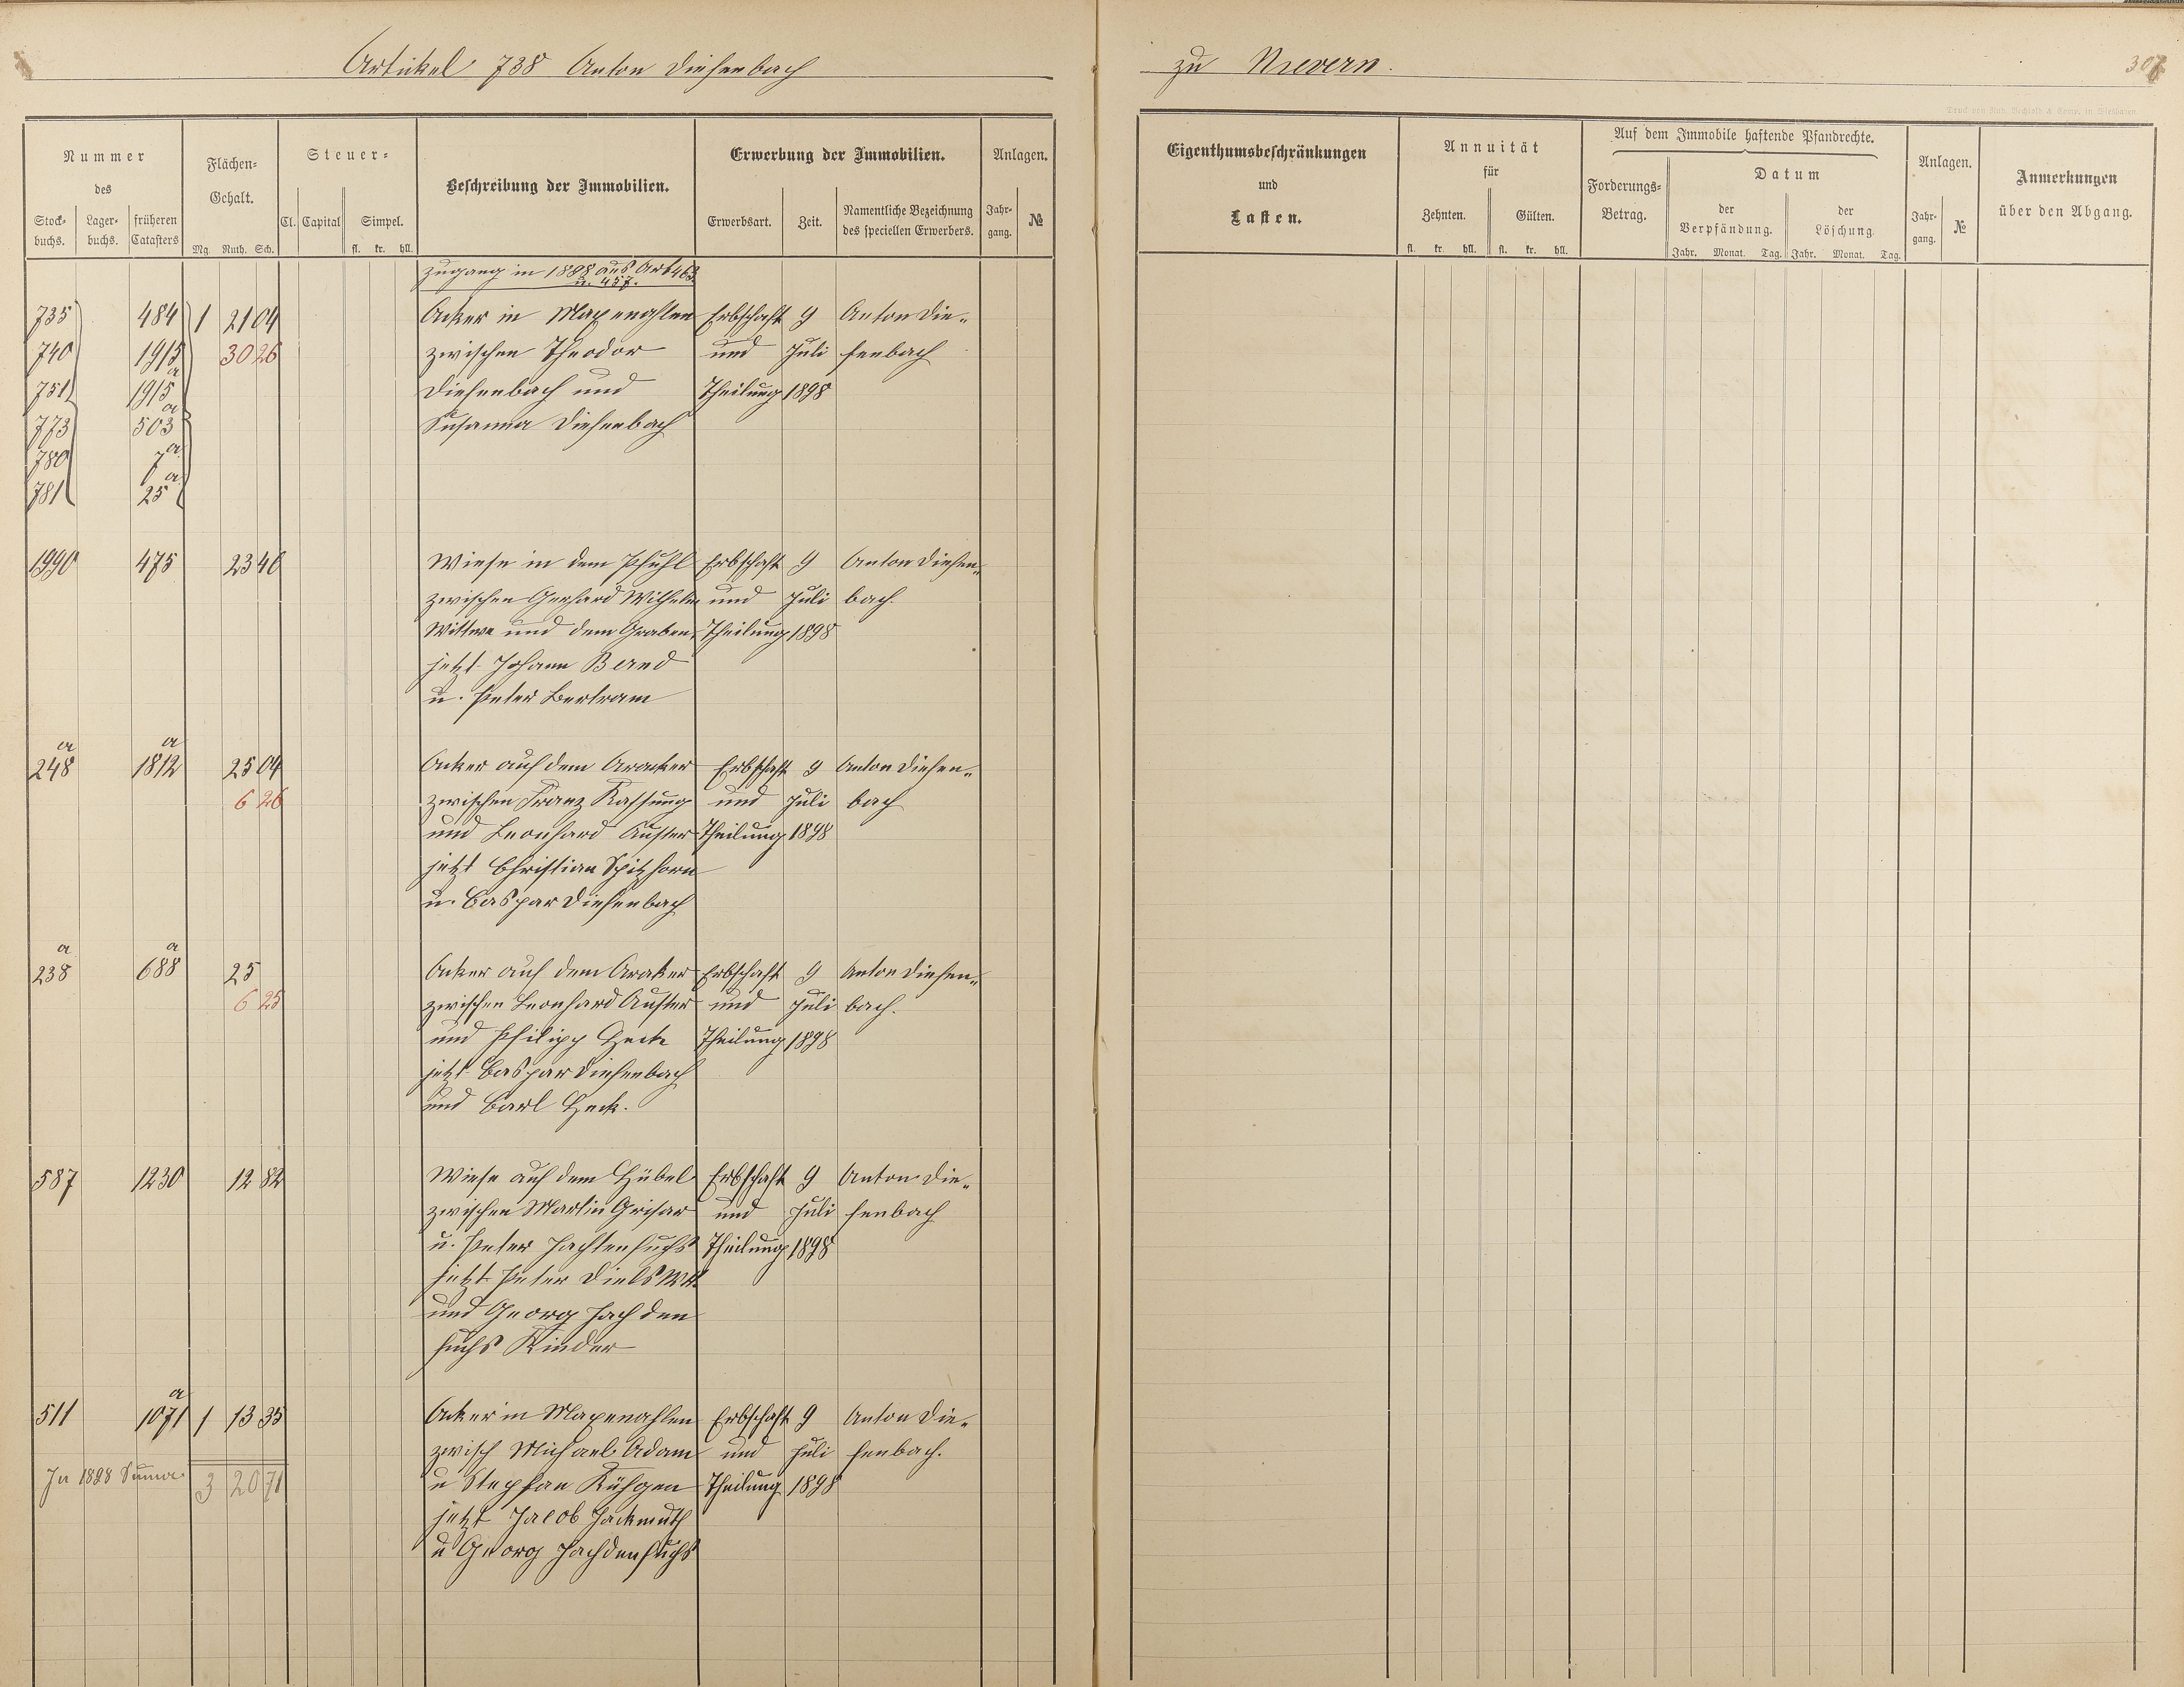 Artikel 738 Anton Diefenbach
zu Nievern.
307
Nummer
des
Stock-
buchs.
Lager-
buchs.
früheren
Catasters
Flächen-
Gehalt.
Mg. Ruth. Sch.
Steuer-
Cl. Capital Simpel.
fl. kr. hll.
Beschreibung der Immobilien.
Erwerbung der Immobilien.
Erwerbsart. Zeit.
Namentliche Bezeichnung
des speciellen Erwerbers.
Anlagen.
Jahr-
gang.
№
Eigenthumsbeschränkungen
und
Lasten.
Annuität
für
Zehnten. Gülten.
fl. kr. hll. fl. kr. hll.
Auf dem Immobile haftende Pfandrechte.
Forderungs-
Betrag.
Datum
der
Verpfändung.
der
Löschung.
Jahr. Monat. Tag. Jahr. Monat. Tag.
Anlagen.
Jahr-
gang.
№
Anmerkungen
über den Abgang.
Zugang in 1898 aus Art 463
u. 457.
735 484 1 21 04 Acker in Maxenahlen Erbschaft 9 Anton Die-
740 1915 30 26 zwischen Theodor und Juli fenbach
751 a 1915 Diefenbach und Theilung 1898
773 a 503 Susanna Diefenbach
780 a 7
781 a 25
1990 475 23 40 Wiese in dem Pfuhl Erbschaft 9 Anton Diefen-
zwischen Gerhard Wilhelm und Juli bach.
Wittwe und dem Graben, Theilung 1898
jetzt Johann Bernd
u. Peter Bertram
a 248 a 1812 25 04 Acker auf dem Aracker Erbschaft 9 Anton Diefen-
6 26 zwischen Franz Kassung und Juli bach
und Leonhard Auster Theilung 1898
jetzt Christian Spitzhorn
u. Caspar Diefenbach
a 238 a 688 25 Acker auf dem Araker Erbschaft 9 Anton Diefen-
6 25 zwischen Leonhard Auster und Juli bach.
und Philipp Heck Theilung 1898
jetzt Caspar Diefenbach
und Carl Heck.
587 1230 12 82 Wiese auf dem Hübel Erbschaft 9 Anton Die-
zwischen Martin Grisar und Juli fenbach
u. Peter Hachtenfuchs Theilung 1898
jetzt Peter Diels Wt.
und Georg Hachden
fuchs Kinder
511 a 1071 1 13 35 Acker in Maxenahlen Erbschaft 9 Anton Die-
zwisch Michael Adam und Juli fenbach.
In 1898 Suma 3 20 71 u Stephan Kühgen Theilung 1898
jetzt Jacob Hackmuth
u Georg Hachdenfuchs